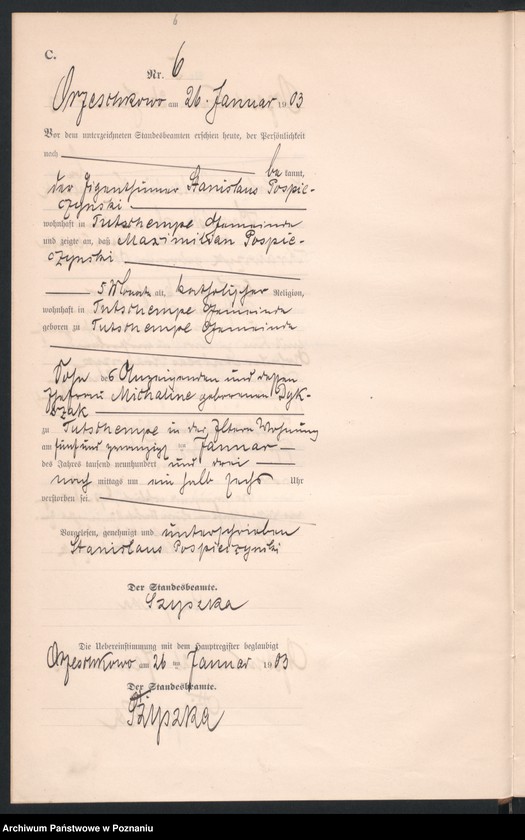 6
C.
Nr. 6
Orzeschkowo am 26. Januar 1903
Vor dem unterzeichneten Standesbeamten erschien heute, der Persönlichkeit
nach be kannt,
der Eigenthümer Stanislaus Pospie-
czynski
wohnhaft in Tutschempe Gemeinde
und zeigte an, daß Maximilian Pospie-
czynski
5 Monate alt, katholischer Religion,
wohnhaft in Tutschempe Gemeinde
geboren zu Tutschempe Gemeinde
Sohn des Anzeigenden und dessen
Ehefrau Michaline geborenen
zu Tutschempe in der Wohnung
am fünfundzwanzigsten Januar
des Jahres tausend neunhundert und drei
nach mittags um ein halb sechs Uhr
verstorben sei.
Vorgelesen, genehmigt und unterschrieben
Stanislaus Pospieczynski
Der Standesbeamte.
Szyszka
Die Uebereinstimmung mit dem Hauptregister beglaubigt
Orzeschkowo am 26 ten Januar 1903
Der Standesbeamte.
Szyszka
Archiwum Państwowe w Poznaniu